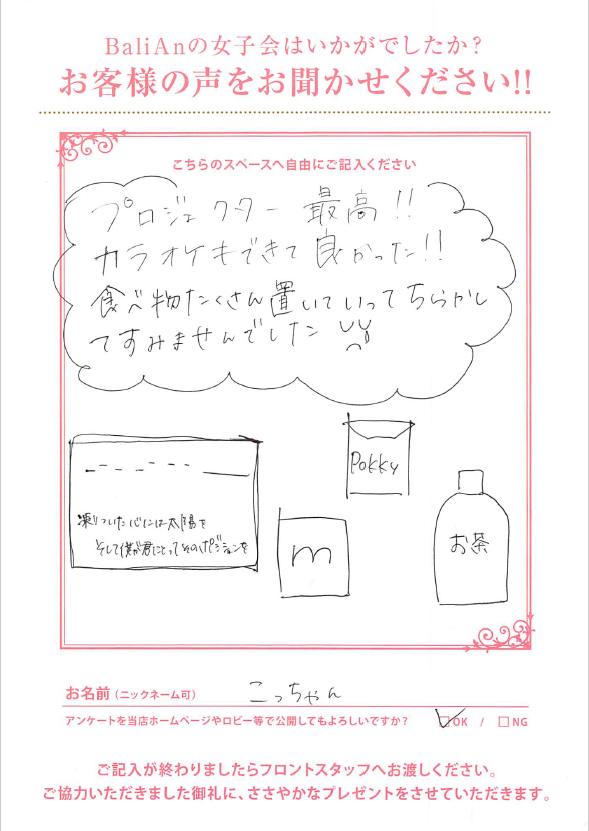 BaliAnの女子会はいかがでしたか？
お客様の声をお聞かせください!!
こちらのスペースへ自由にご記入ください
プロジェクター 最高!!
カラオケもできて良かった!!
食べ物たくさん置いていってちらかし
てすみませんでした
Pokky
凍りついた心には太陽を
そして僕が君にとってそのポジションを
m
お茶
お名前（ニックネーム可） こっちゃん
アンケートを当店ホームページやロビー等で公開してもよろしいですか？ OK / NG
ご記入が終わりましたらフロントスタッフへお渡しください。
ご協力いただきました御礼に、ささやかなプレゼントをさせていただきます。